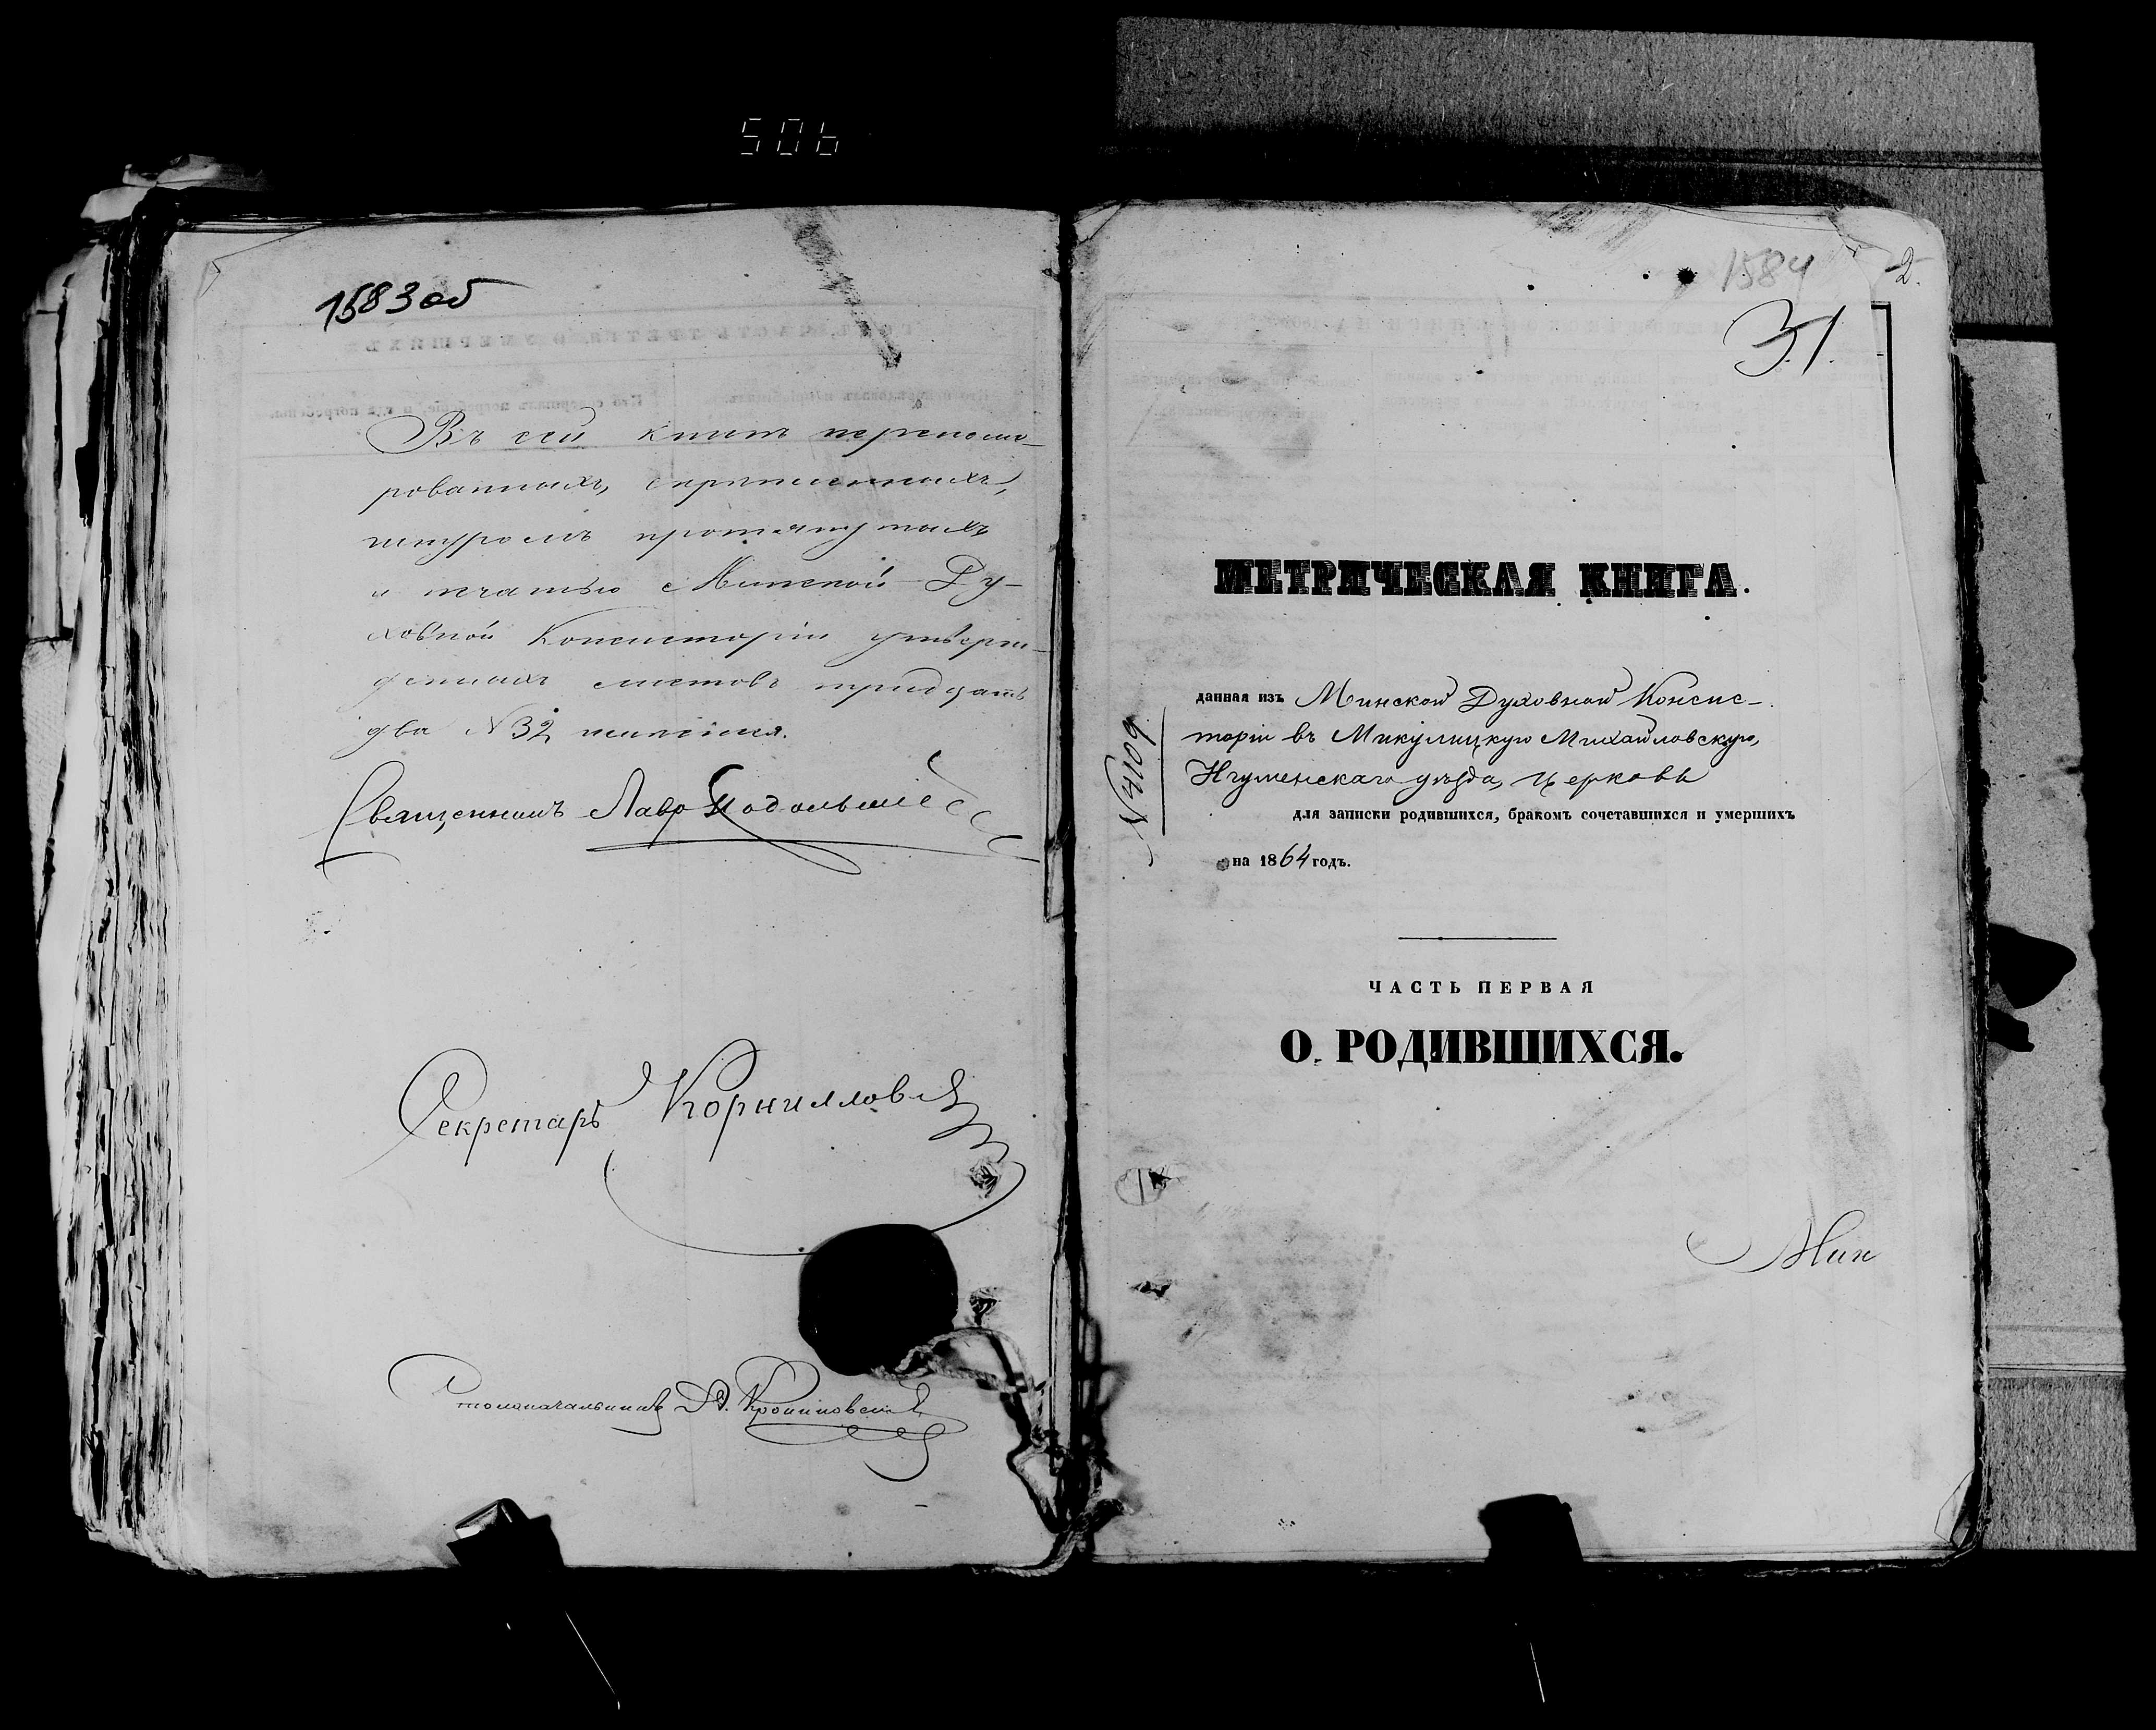 506
1583 об
Въ сей книгѣ переноме-
рованныхъ, скрѣпленныхъ,
шнуромъ протянутыхъ
и печатью Минской Ду-
ховной Консисторіи утверж-
денныхъ листовъ тридцать
два № 32
Священникъ Лавръ Подольшіе
Секретарь Корниловъ
Столоначальникъ
1584
2.
31.
МЕТРИЧЕСКАЯ КНИГА.
данная изъ Минской Духовной Консис-
торіи въ Микулицкую Михайловскую,
Игуменскаго уѣзда, церковь
для записки родившихся, бракомъ сочетавшихся и умершихъ
на 1864 годъ.
№ 4109
ЧАСТЬ ПЕРВАЯ
О РОДИВШИХСЯ.
Мин